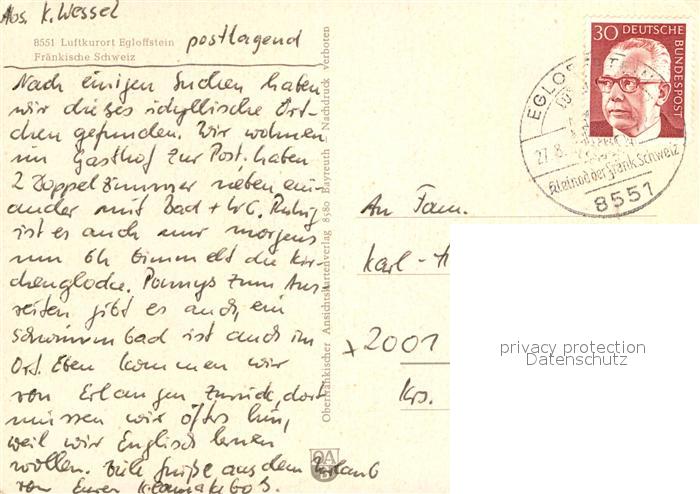 Abs. K. Wessel
postlagend
8551 Luftkurort Egloffstein
Fränkische Schweiz
Nach einigen Suchen haben
wir dieses idyllische Ört-
chen gefunden. Wir wohnen
im Gasthof zur Post. haben
2 Doppelzimmer neben ein-
ander mit Bad + WC. Ruhig
ist es auch nur morgens
um 6h bimmelt die Kir-
chenglocke. Ponnys zum Aus-
reiten gibt es auch, ein
Schwimmbad ist auch im
Ort. Eben kommen wir
von Erlangen zurück, dort
müssen wir öfters hin,
weil wir Englisch lernen
wollen. Viele Grüße aus dem Urlaub
von Euren
Oberfränkischer Ansichtskartenverlag 8580 Bayreuth — Nachdruck verboten
OA
30 DEUTSCHE
BUNDESPOST
27.8.
Kleinod der Fränk. Schweiz
8551
An Fam.
Karl-
2001
Krs.
privacy protection
Datenschutz